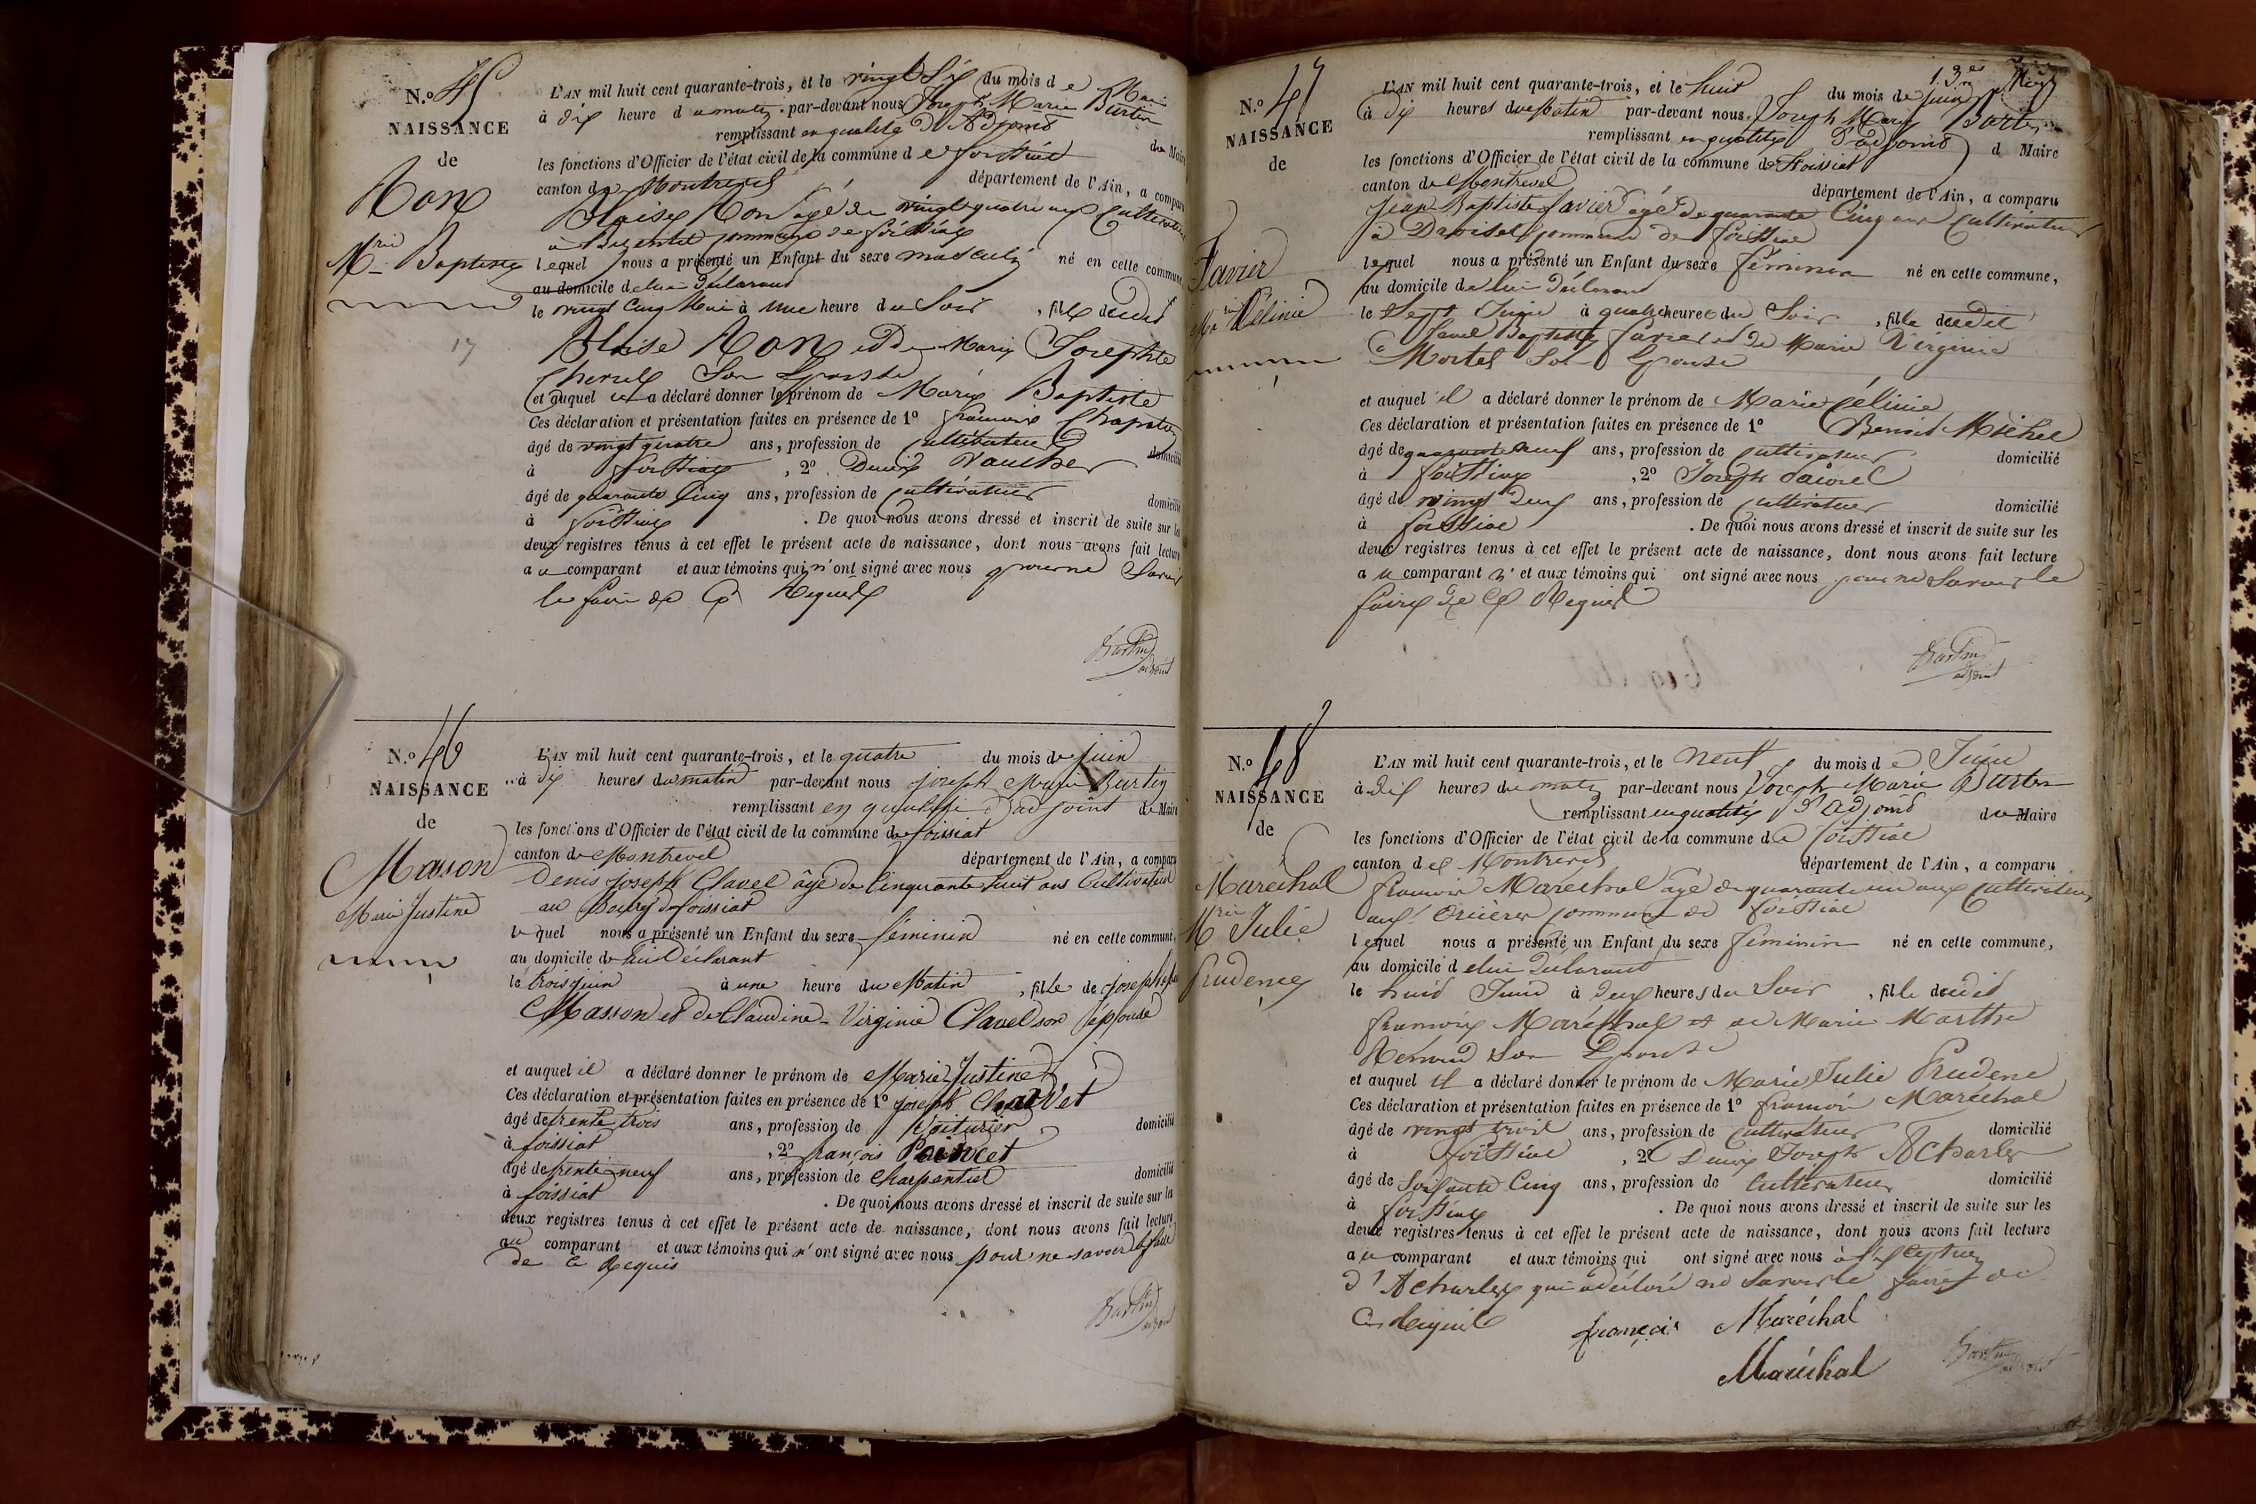 N.o 45
NAISSANCE
de
Ron
Mrie Baptiste
17
L'AN mil huit cent quarante-trois, et le vingt Six du mois de Mai
à dix heure d u matin par-devant nous Joseph Marie Burtin
remplissant en qualité d'Adjoint du Maire
les fonctions d'Officier de l'état civil de la commune d e foissiat
canton de Montrevel département de l'Ain, a comparu
Blaise Ron âgé de vingt quatre ans Cultivateur
à commune de foissiat
lequel nous a présenté un Enfant du sexe masculin né en cette commune,
au domicile de lui Déclarant
le vingt Cinq Mai à une heure du Soir, fils dudit
Blaise Ron et de Marie Josephte
son Epouse
et auquel il a déclaré donner le prénom de Marie Baptiste
Ces déclaration et présentation faites en présence de 1o françois
âgé de vingt quatre ans, profession de Cultivateur domicilié
à foissiat, 2o Denis Vauther
âgé de quarante Cinq ans, profession de Cultivateur domicilié
à foissiat. De quoi nous avons dressé et inscrit de suite sur les
deux registres tenus à cet effet le présent acte de naissance, dont nous avons fait lecture
a u comparant et aux témoins qui n'ont signé avec nous pour ne Savoir
le faire de ce Requis
Burtin
adjoint
N.o 46
NAISSANCE
de
Masson
Marie Justine
L'AN mil huit cent quarante-trois, et le quatre du mois de juin
à dix heures du matin par-devant nous joseph Marie Burtin
remplissant en qualité d'adjoint du Maire
les fonctions d'Officier de l'état civil de la commune de foissiat
canton de Montrevel département de l'Ain, a comparu
Denis joseph Clavel âgé de Cinquante huit ans Cultivateur
au Bourg de foissiat
le quel nous a présenté un Enfant du sexe féminin né en cette commune,
au domicile de lui Déclarant
le trois juin à une heure du Matin, fille de joseph
Masson et de Claudine-Virginie Clavel son épouse
et auquel il a déclaré donner le prénom de Marie Justine
Ces déclaration et présentation faites en présence de 1o joseph Chauvet
âgé de trente trois ans, profession de Voiturier domicilié
à foissiat, 2o françois Poincet
âgé de trente neuf ans, profession de Charpentier domicilié
à foissiat. De quoi nous avons dressé et inscrit de suite sur les
deux registres tenus à cet effet le présent acte de naissance, dont nous avons fait lecture
au comparant et aux témoins qui n'ont signé avec nous pour ne savoir le faire
de ce Requis
Burtin
adjoint
N.o 47
NAISSANCE
de
Favier
Mrie Célinie
L'AN mil huit cent quarante-trois, et le huit du mois de juin
à dix heures du matin par-devant nous Joseph Marie Burtin
remplissant en qualité d'adjoint d Maire
les fonctions d'Officier de l'état civil de la commune de foissiat
canton de Montrevel département de l'Ain, a comparu
Jean Baptiste Favier âgé de quarante Cinq ans Cultivateur
à commune de foissiat
lequel nous a présenté un Enfant du sexe féminin né en cette commune,
au domicile de lui Déclarant
le Sept Juin à quatre heures du Soir, fille dudit
Jean Baptiste favier et de Marie Virginie
Mortel Son Epouse
et auquel il a déclaré donner le prénom de Marie Célinie
Ces déclaration et présentation faites en présence de 1o Benoit Michel
âgé de quarante neuf ans, profession de cultivateur domicilié
à foissiat, 2o Joseph
âgé de vingt Deux ans, profession de cultivateur domicilié
à foissiat. De quoi nous avons dressé et inscrit de suite sur les
deux registres tenus à cet effet le présent acte de naissance, dont nous avons fait lecture
a u comparant n' et aux témoins qui ont signé avec nous pour ne Savoir le
faire de ce Requis
Burtin
adjoint
N.o 48
NAISSANCE
de
Maréchal
Mrie Julie
Prudence
L'AN mil huit cent quarante-trois, et le neuf du mois d e Juin
à dix heures du matin par-devant nous Joseph Marie Burtin
remplissant en qualité d'Adjoint du Maire
les fonctions d'Officier de l'état civil de la commune d e foissiat
canton de Montrevel département de l'Ain, a comparu
françois Maréchal âgé de quarante un ans Cultivateur
aux commune de foissiat
lequel nous a présenté un Enfant du sexe féminin né en cette commune,
au domicile d e lui Déclarant
le huit Juin à deux heures du Soir, fille dudit
françois Maréchal et de Marie Marthe
Renoud Son Epouse
et auquel il a déclaré donner le prénom de Marie Julie Prudence
Ces déclaration et présentation faites en présence de 1o françois Maréchal
âgé de vingt trois ans, profession de cultivateur domicilié
à foissiat, 2o Denis Joseph Acharles
âgé de Soixante Cinq ans, profession de Cultivateur domicilié
à foissiat. De quoi nous avons dressé et inscrit de suite sur les
deux registres tenus à cet effet le présent acte de naissance, dont nous avons fait lecture
a u comparant et aux témoins qui ont signé avec nous à l'exception
d'Acharles qui a déclaré ne Savoir le faire de
ce Requis
françois Maréchal
Maréchal
Burtin
adjoint